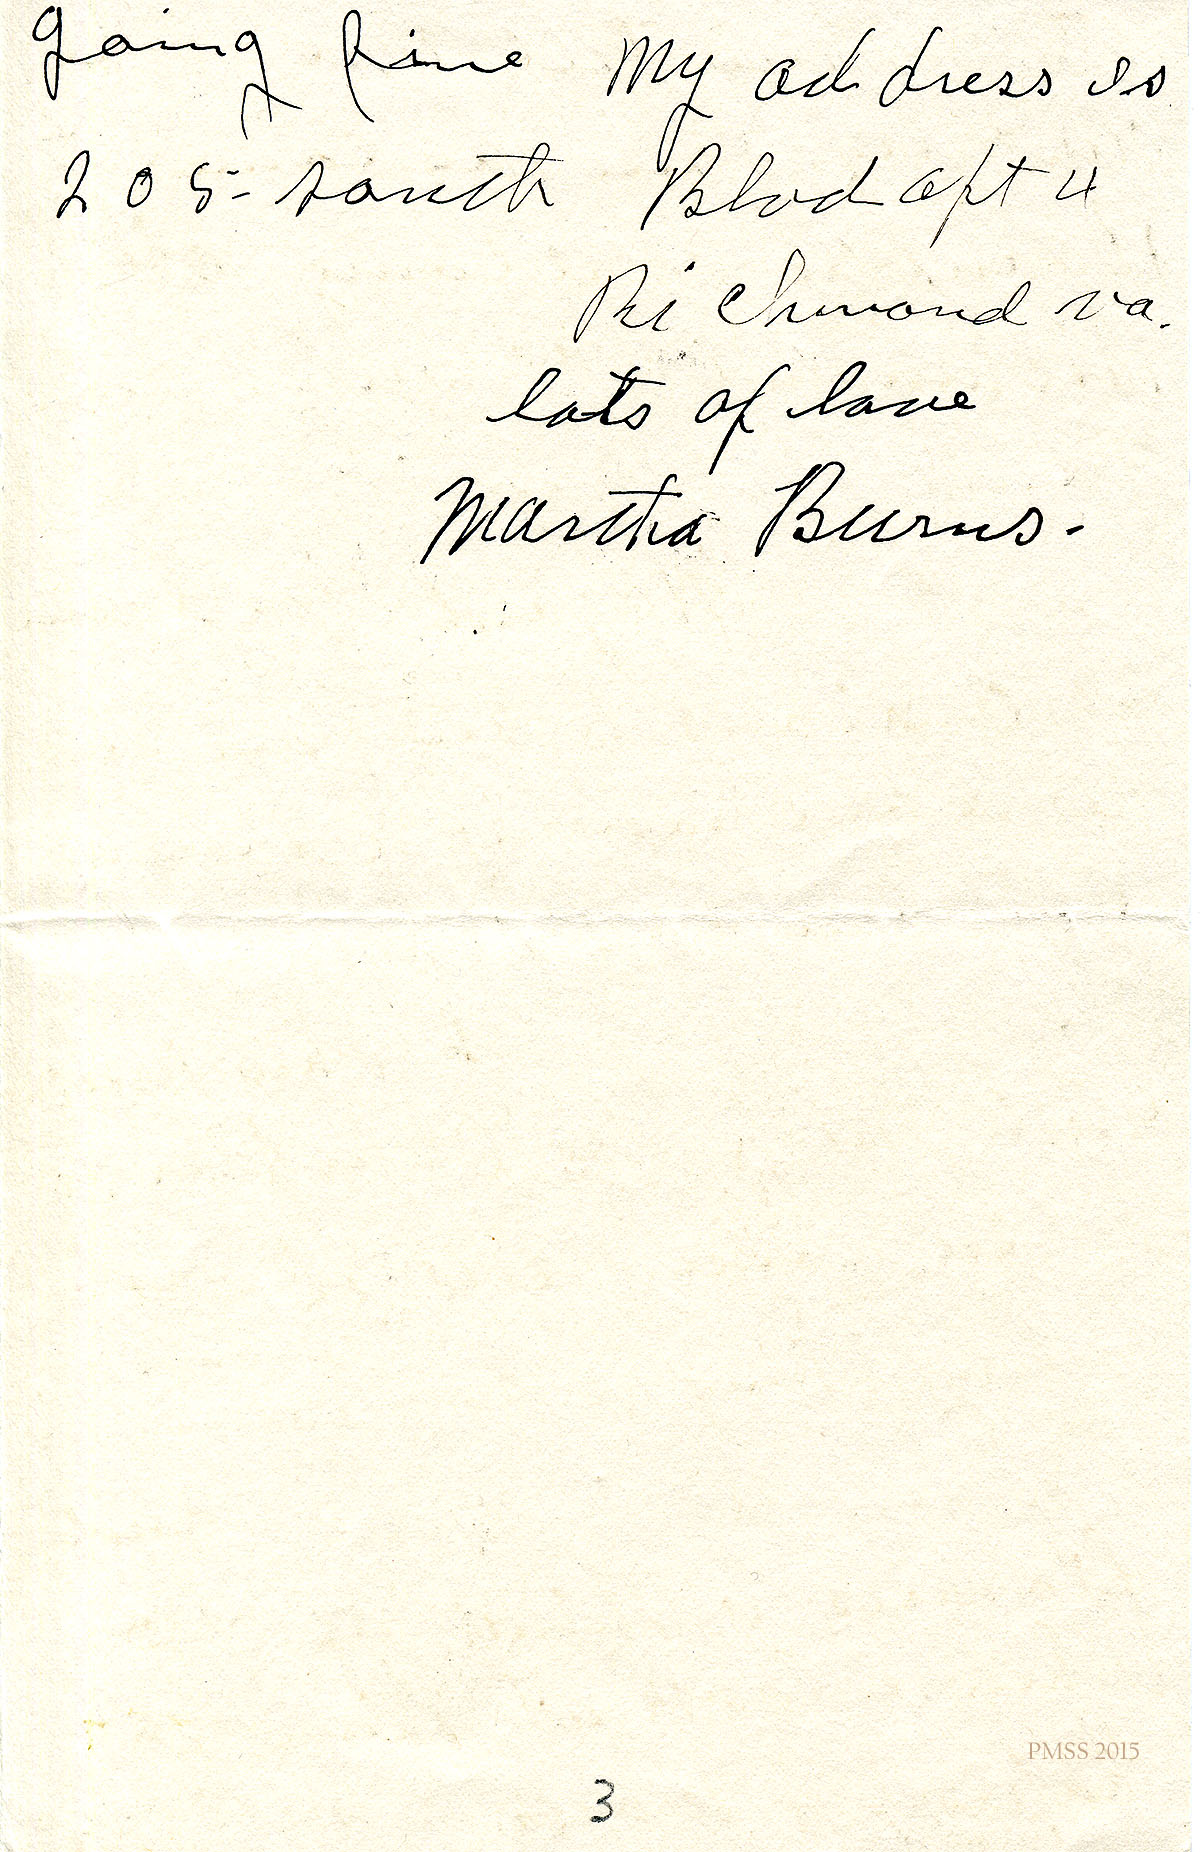 going fine My address is
205- south Blvd apt 4
Richmond va.
lots of love
Martha Burns.
PMSS 2015
3